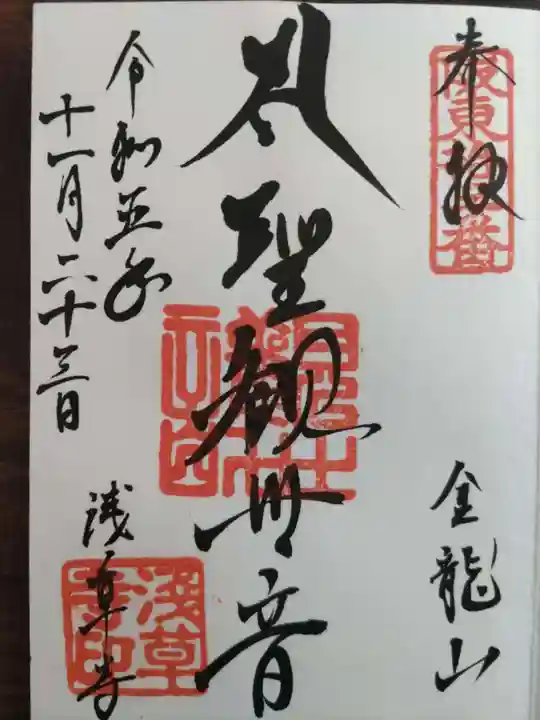 奉拝
東拾三番
金龍山
聖観世音
令和五年
十一月二十三日
浅草寺
浅草寺印